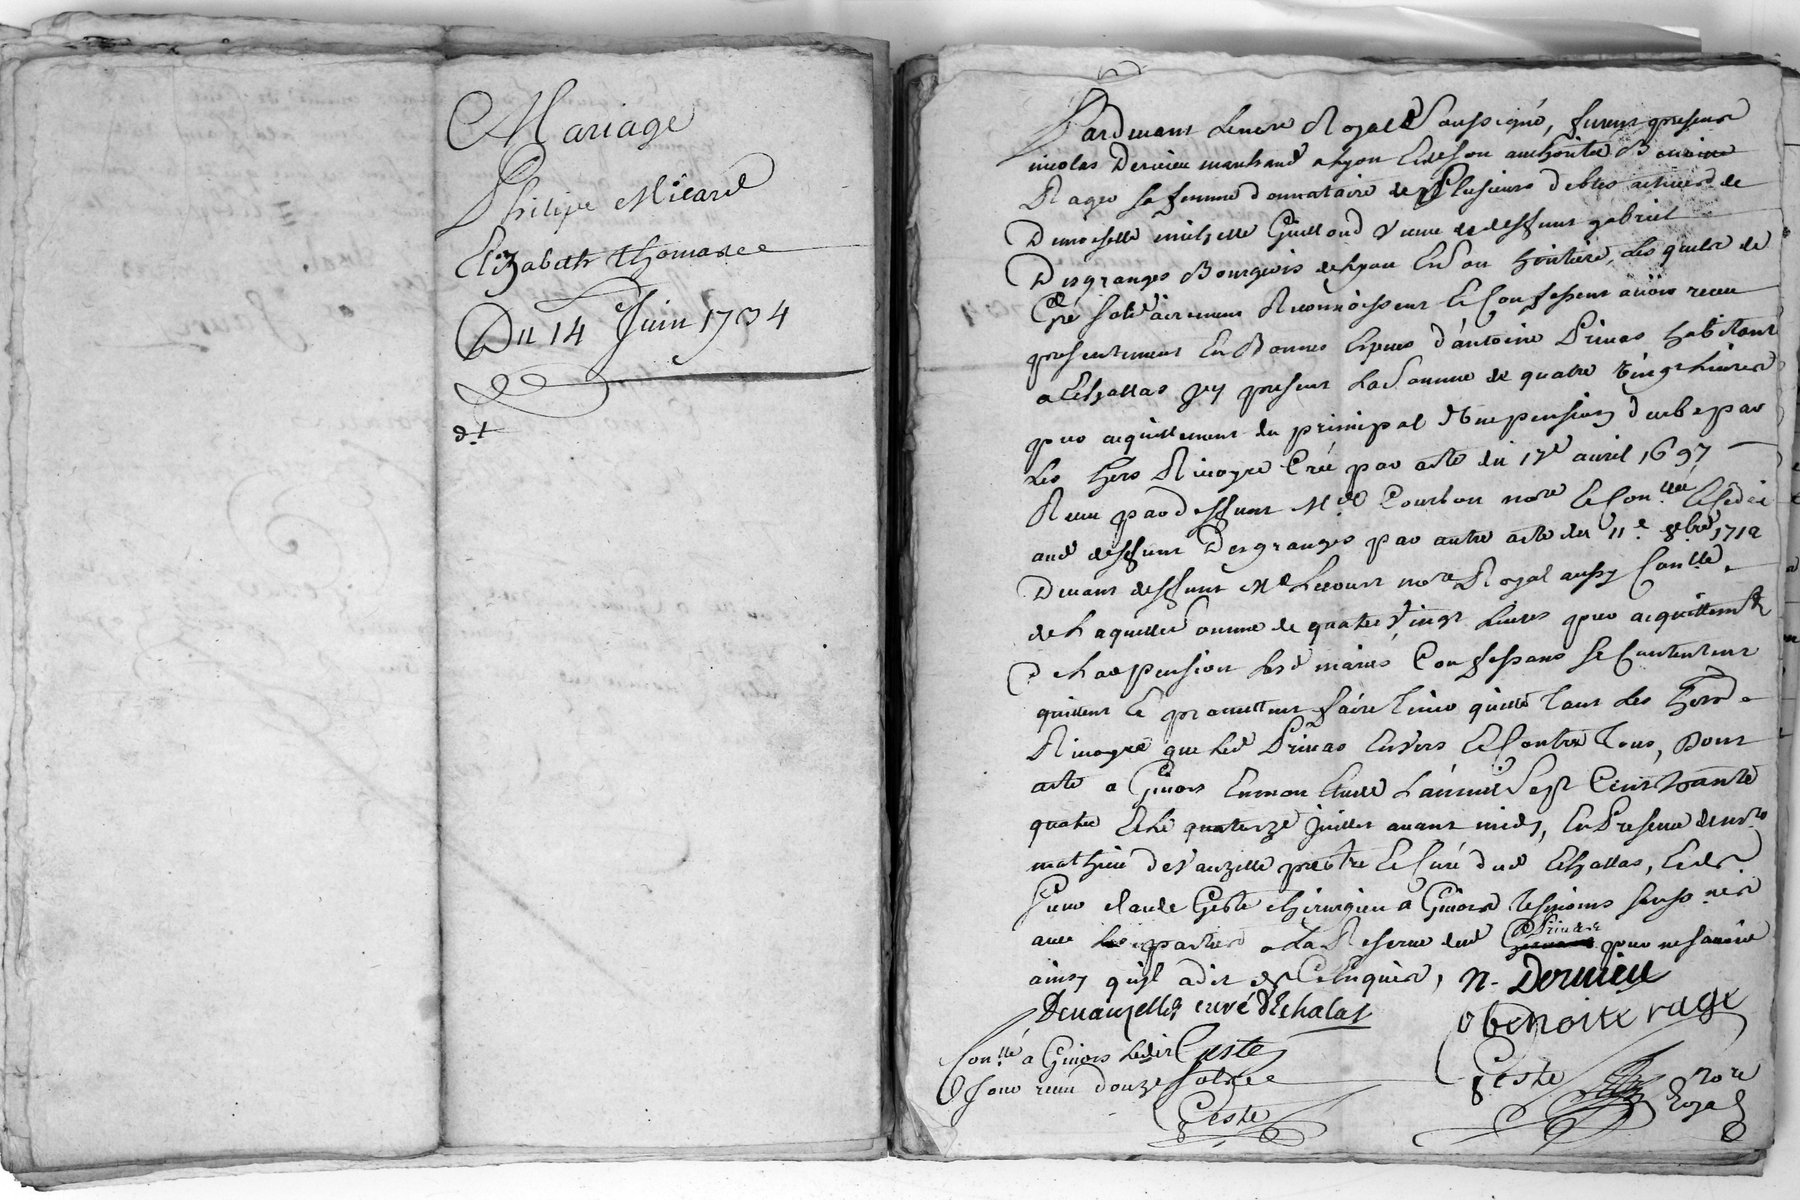 Mariage
Philipe Micard
Elizabeth thomasee
Du 14 Juin 1734
d.t
Pardevant Le no.re Royal Soussigné, furent presens
nicolas Dervieu marchand a Lyon Et de Son authorité Benoite
Rage Sa femme donnataire de Plusieurs debtes actives de
Demoiselle michelle Guillond veuve de deffunt gabriel
Desgranges Bourgeois de Lyon Et Son heritiere, Lesquels de
Gré Solidairement Reconnoissent Et Confessent avoir receu
presentement En Bonnes Especes d'antoine Primas habitant
a Echallas jcy present La Somme de quatre vingt Livres
pour acquittement du principal d'une pension deube par
Les hers Rivoyre Créé par acte du 17e avril 1697
Receu par deffunt Me Courbon nore Et Con.llé Et Cedée
aud deffunt Desgranges par autre acte du 11.e 8.bre 1712
Devant deffunt Me nore Royal aussy Con.llé
de Laquelle Somme de quatre vingt Livres pour acquittemt
de Lad pension Lesd mariés Confessans Se Contentent
quittent Et promettent faire tenir quitte tant Les hers
Rivoyre que Led Primas Envers Et Contre tous, Dont
acte a Givors En mon Etude L'an mil Sept Cent trante
quatre Et Le quatorze Juillet avant midy, En Presence de
mathieu devauzelle prestre Et Curé dud Echallas, Et de
Sieur claude Geste chirurgien a Givors tesmoins Soussignés
avec Les parties a La Reserve dud Primas pour ne Sçavoir
ainsy quil a dit de Ce Enquis, N. Dervieu
Devauzelle curé d'Echalas
benoite rage
Con.llé a Givors Ledit Geste
Jour receu douze Sols
Geste
Geste
nore
Royal